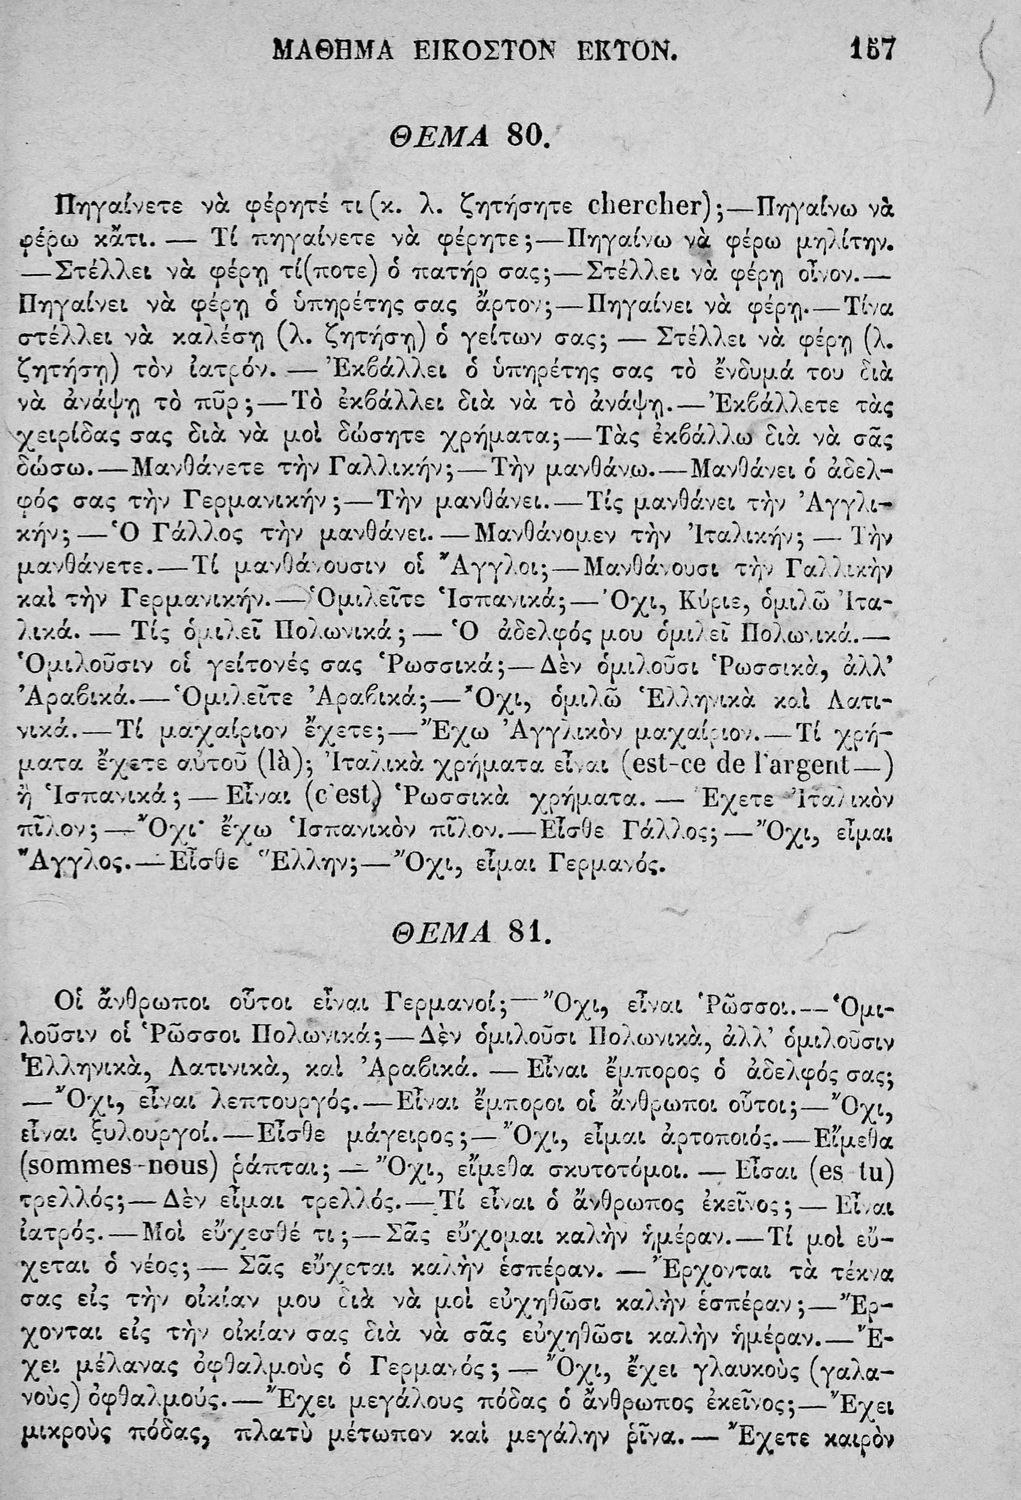 ΜΑΘΗΜΑ ΕΙΚΟΣΤΟΝ ΕΚΤΟΝ. 157
ΘΕΜΑ 80.
Πηγαίνετε νὰ φέρητέ τι (κ. λ. ζητήσητε chercher);—Πηγαίνω νὰ
φέρω κἄτι. — Τί πηγαίνετε νὰ φέρητε;—Πηγαίνω νὰ φέρω μηλίτην.
—Στέλλει νὰ φέρῃ τί(ποτε) ὁ πατήρ σας;—Στέλλει νὰ φέρῃ οἶνον.—
Πηγαίνει νὰ φέρῃ ὁ ὑπηρέτης σας ἄρτον;—Πηγαίνει νὰ φέρῃ.—Τίνα
στέλλει νὰ καλέσῃ (λ. ζητήσῃ) ὁ γείτων σας; — Στέλλει νὰ φέρῃ (λ.
ζητήσῃ) τὸν ἰατρόν. — Ἐκβάλλει ὁ ὑπηρέτης σας τὸ ἔνδυμά του διὰ
νὰ ἀνάψῃ τὸ πῦρ;—Τὸ ἐκβάλλει διὰ νὰ τὸ ἀνάψῃ.—Ἐκβάλλετε τὰς
χειρίδας σας διὰ νὰ μοὶ δώσητε χρήματα;—Τὰς ἐκβάλλω διὰ νὰ σᾶς
δώσω.—Μανθάνετε τὴν Γαλλικήν;—Τὴν μανθάνω.—Μανθάνει ὁ ἀδελ-
φός σας τὴν Γερμανικήν;—Τὴν μανθάνει.—Τίς μανθάνει τὴν Ἀγγλι-
κήν; — Ὁ Γάλλος τὴν μανθάνει. — Μανθάνομεν τὴν Ἰταλικήν; — Τὴν
μανθάνετε.—Τί μανθάνουσιν οἱ Ἄγγλοι;—Μανθάνουσι τὴν Γαλλικὴν
καὶ τὴν Γερμανικήν.—Ὁμιλεῖτε Ἱσπανικά;—Ὄχι, Κύριε, ὁμιλῶ Ἰτα-
λικά. — Τίς ὁμιλεῖ Πολωνικά; — Ὁ ἀδελφός μου ὁμιλεῖ Πολωνικά.—
Ὁμιλοῦσιν οἱ γείτονές σας Ῥωσσικά;—Δὲν ὁμιλοῦσι Ῥωσσικὰ, ἀλλ’
Ἀραβικά.—Ὁμιλεῖτε Ἀραβικά;—Ὄχι, ὁμιλῶ Ἑλληνικὰ καὶ Λατι-
νικά.—Τί μαχαίριον ἔχετε;—Ἔχω Ἀγγλικὸν μαχαίριον.—Τί χρή-
ματα ἔχετε αὐτοῦ (là); Ἰταλικὰ χρήματα εἶναι (est-ce de l'argent—)
ἢ Ἱσπανικά; — Εἶναι (c'est) Ῥωσσικὰ χρήματα. — Ἔχετε Ἰταλικὸν
πῖλον;—Ὄχι· ἔχω Ἱσπανικὸν πῖλον.—Εἶσθε Γάλλος;—Ὄχι, εἶμαι
Ἄγγλος.—Εἶσθε Ἕλλην;—Ὄχι, εἶμαι Γερμανός.
ΘΕΜΑ 81.
Οἱ ἄνθρωποι οὗτοι εἶναι Γερμανοί;—Ὄχι, εἶναι Ῥῶσσοι.—Ὁμι-
λοῦσιν οἱ Ῥῶσσοι Πολωνικά;—Δὲν ὁμιλοῦσι Πολωνικὰ, ἀλλ’ ὁμιλοῦσιν
Ἑλληνικὰ, Λατινικὰ, καὶ Ἀραβικά. — Εἶναι ἔμπορος ὁ ἀδελφός σας;
—Ὄχι, εἶναι λεπτουργός.—Εἶναι ἔμποροι οἱ ἄνθρωποι οὗτοι;—Ὄχι,
εἶναι ξυλουργοί.—Εἶσθε μάγειρος;—Ὄχι, εἶμαι ἀρτοποιός.—Εἴμεθα
(sommes-nous) ῥάπται; — Ὄχι, εἴμεθα σκυτοτόμοι. — Εἶσαι (es tu)
τρελλός;—Δὲν εἶμαι τρελλός.—Τί εἶναι ὁ ἄνθρωπος ἐκεῖνος; — Εἶναι
ἰατρός.—Μοὶ εὔχεσθέ τι;—Σᾶς εὔχομαι καλὴν ἡμέραν.—Τί μοὶ εὔ-
χεται ὁ νέος; — Σᾶς εὔχεται καλὴν ἑσπέραν. — Ἔρχονται τὰ τέκνα
σας εἰς τὴν οἰκίαν μου διὰ νὰ μοὶ εὐχηθῶσι καλὴν ἑσπέραν;—Ἔρ-
χονται εἰς τὴν οἰκίαν σας διὰ νὰ σᾶς εὐχηθῶσι καλὴν ἡμέραν.—Ἔ-
χει μέλανας ὀφθαλμοὺς ὁ Γερμανός; — Ὄχι, ἔχει γλαυκοὺς (γαλα-
νοὺς) ὀφθαλμούς.—Ἔχει μεγάλους πόδας ὁ ἄνθρωπος ἐκεῖνος;—Ἔχει
μικροὺς πόδας, πλατὺ μέτωπον καὶ μεγάλην ῥῖνα.— Ἔχετε καιρὸν